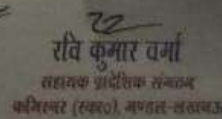 रवि कुमार वर्मा
सहायक प्रादेशिक संगठन
कमिश्नर (स्का०), मण्डल-लखनऊ